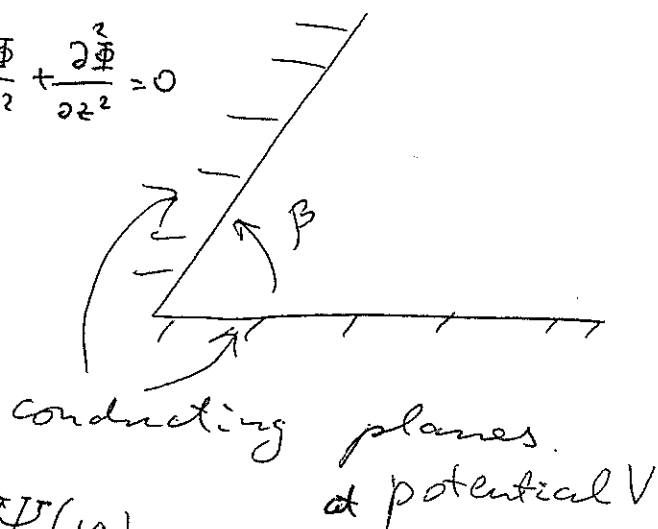 ∂²Φ/∂z² = 0
β
conducting planes.
at potential V